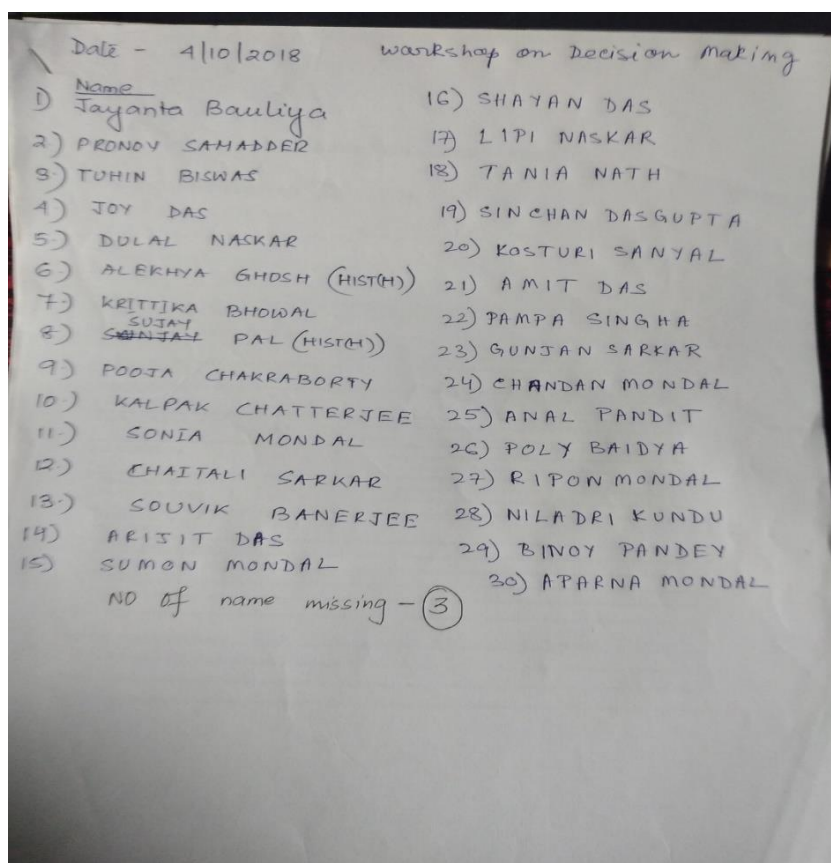 Date - 4/10/2018 Workshop on Decision Making
Name
1) Jayanta Bauliya
2) PRONOV SAMADDER
3) TUHIN BISWAS
4) JOY DAS
5) DULAL NASKAR
6) ALEKHYA GHOSH (HIST(H))
7) KRITTIKA BHOWAL
SUJAY
8) SANJAY PAL (HIST(H))
9) POOJA CHAKRABORTY
10) KALPAK CHATTERJEE
11) SONIA MONDAL
12) CHAITALI SARKAR
13) SOUVIK BANERJEE
14) ARIJIT DAS
15) SUMON MONDAL
NO of name missing - 3
16) SHAYAN DAS
17) LIPI NASKAR
18) TANIA NATH
19) SINCHAN DASGUPTA
20) KOSTURI SANYAL
21) AMIT DAS
22) PAMPA SINGHA
23) GUNJAN SARKAR
24) CHANDAN MONDAL
25) ANAL PANDIT
26) POLY BAIDYA
27) RIPON MONDAL
28) NILADRI KUNDU
29) BINOY PANDEY
30) APARNA MONDAL